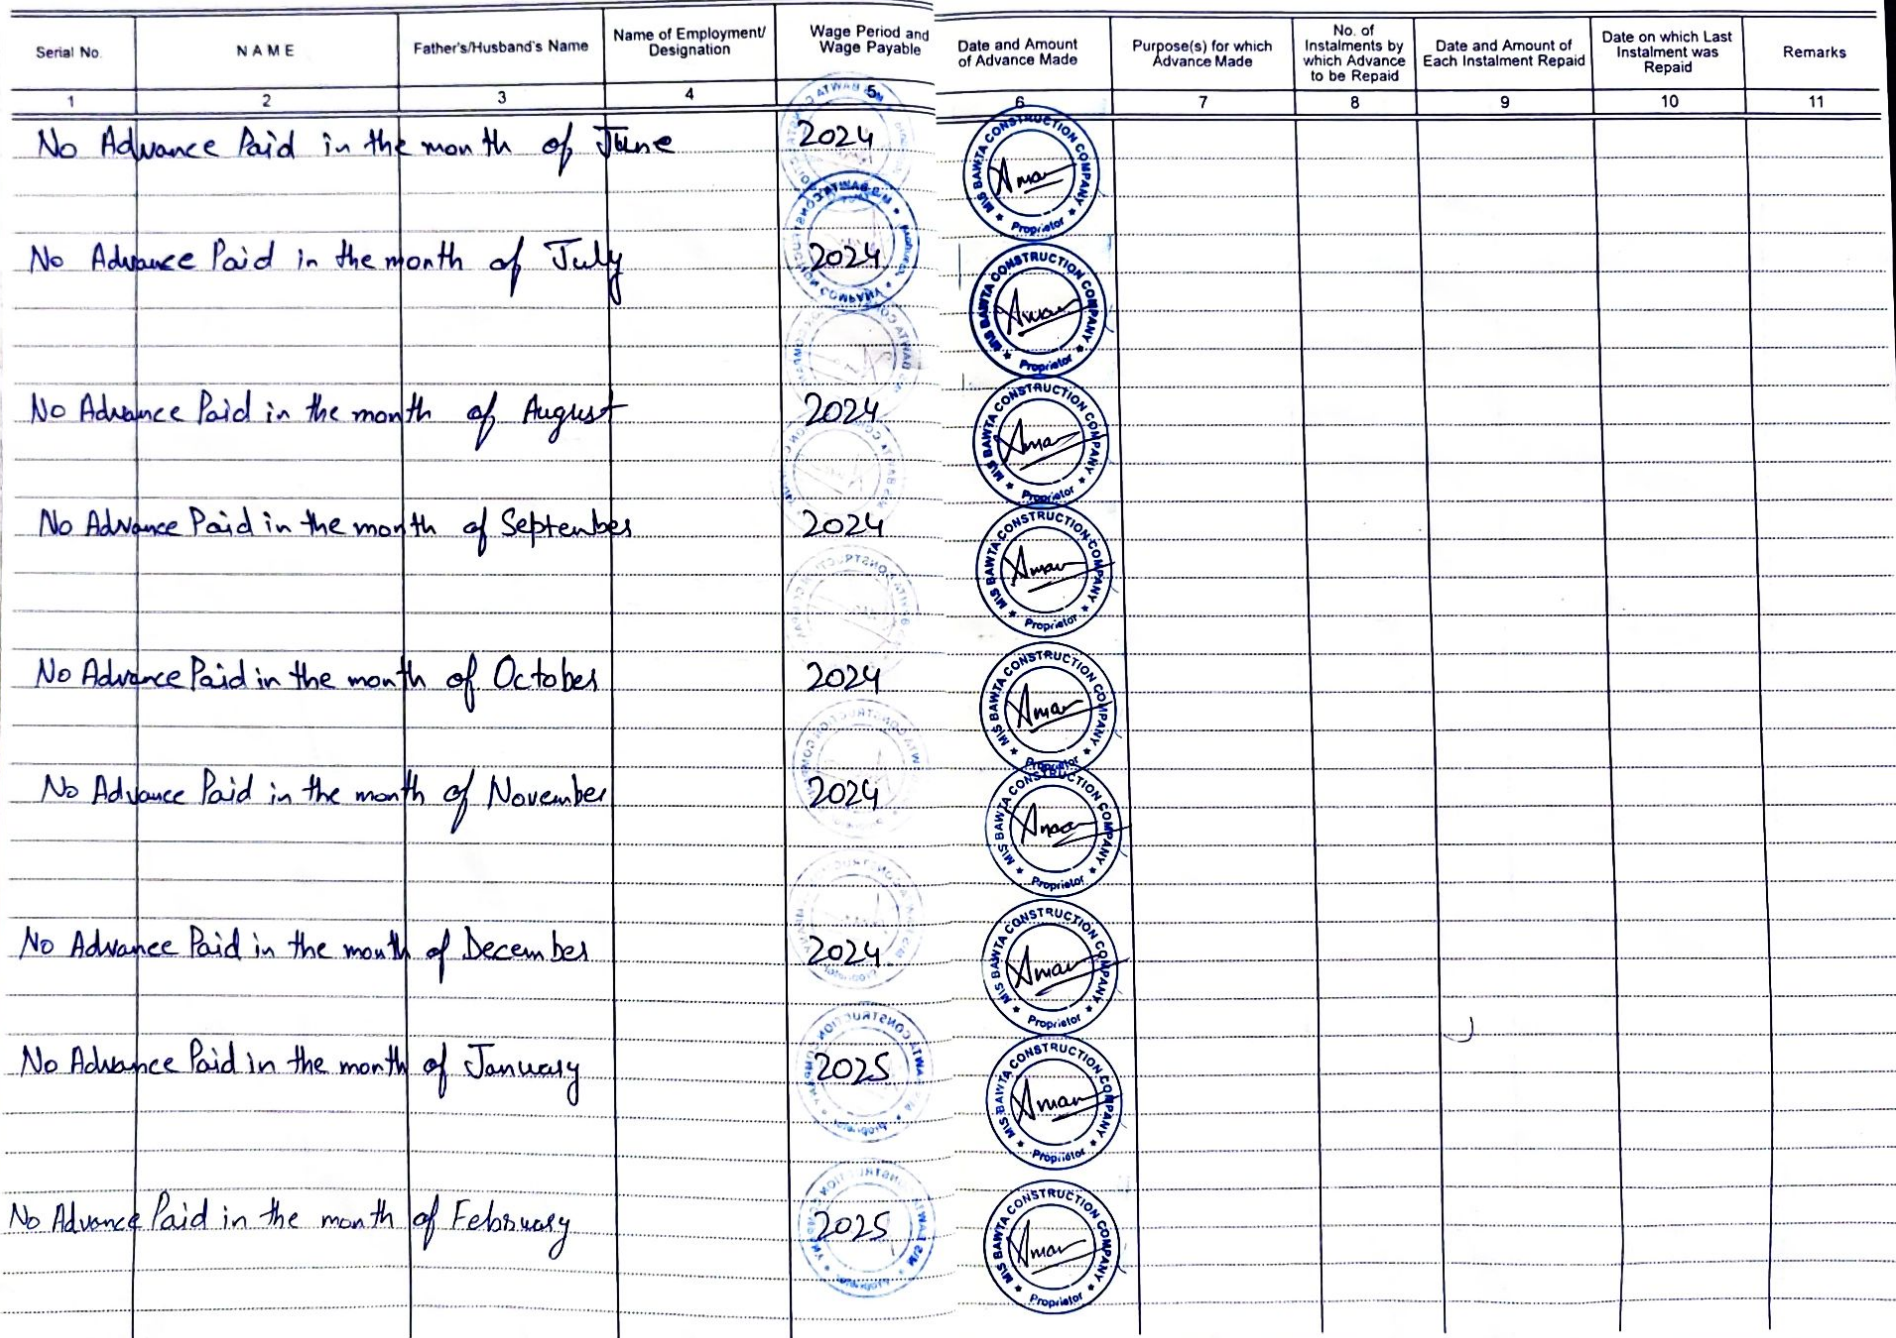 Serial No.
NAME
Father's/Husband's Name
Name of Employment/
Designation
Wage Period and
Wage Payable
Date and Amount
of Advance Made
Purpose(s) for which
Advance Made
No. of
Instalments by
which Advance
to be Repaid
Date and Amount of
Each Instalment Repaid
Date on which Last
Instalment was
Repaid
Remarks
1 2 3 4 5 6 7 8 9 10 11
No Advance Paid in the month of June 2024
M/S BAWTA CONSTRUCTION COMPANY
Aman
Proprietor
No Advance Paid in the month of July 2024
M/S BAWTA CONSTRUCTION COMPANY
Aman
Proprietor
No Advance Paid in the month of August 2024
M/S BAWTA CONSTRUCTION COMPANY
Aman
Proprietor
No Advance Paid in the month of September 2024
M/S BAWTA CONSTRUCTION COMPANY
Aman
Proprietor
No Advance Paid in the month of October 2024
M/S BAWTA CONSTRUCTION COMPANY
Aman
Proprietor
No Advance Paid in the month of November 2024
M/S BAWTA CONSTRUCTION COMPANY
Aman
Proprietor
No Advance Paid in the month of December 2024
M/S BAWTA CONSTRUCTION COMPANY
Aman
Proprietor
No Advance Paid in the month of January 2025
M/S BAWTA CONSTRUCTION COMPANY
Aman
Proprietor
No Advance Paid in the month of February 2025
M/S BAWTA CONSTRUCTION COMPANY
Aman
Proprietor